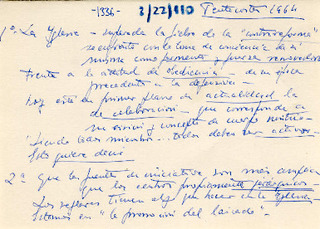 -1336- 3/22/110 Pentecostés 1964
1º La Iglesia - superada la fiebre de la "contrarreforma"
se enfrenta con la toma de conciencia de sí
misma como permanente y fuerza renovadora
Frente a la actitud de obediencia - de una época
precedente a la defensiva -
hoy está en primer plano de actualidad la
de colaboración - que corresponde a
su envío y concepto de cuerpo místico
Siendo cada miembro... todos deben ser activos -
Esto quiere decir
2º que la fuente de iniciativa son más amplia
que los centros propiamente jerárquicos -
Los seglares tienen algo que hacer en la Iglesia
Estamos en "la promoción del laicado" -